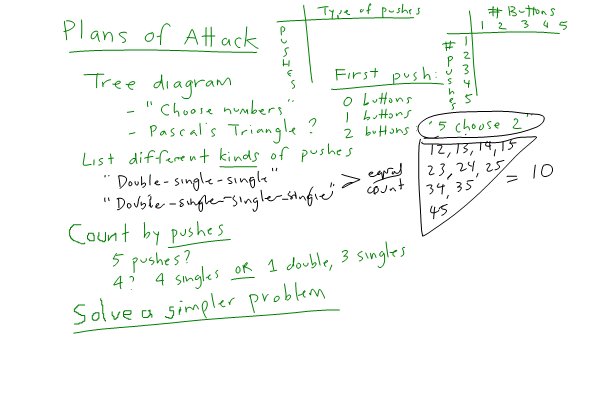 Plans of Attack
Type of pushes
PUSHES
# Buttons
1 2 3 4 5
# pushes
1
2
3
4
5
Tree diagram
- "Choose numbers"
- Pascal's Triangle?
First push:
0 buttons
1 buttons
2 buttons
"5 choose 2"
12, 13, 14, 15
23, 24, 25
34, 35
45
= 10
List different kinds of pushes
"Double-single-single"
"Double-single-single-single"
> equal count
Count by pushes
5 pushes?
4? 4 singles OR 1 double, 3 singles
Solve a simpler problem